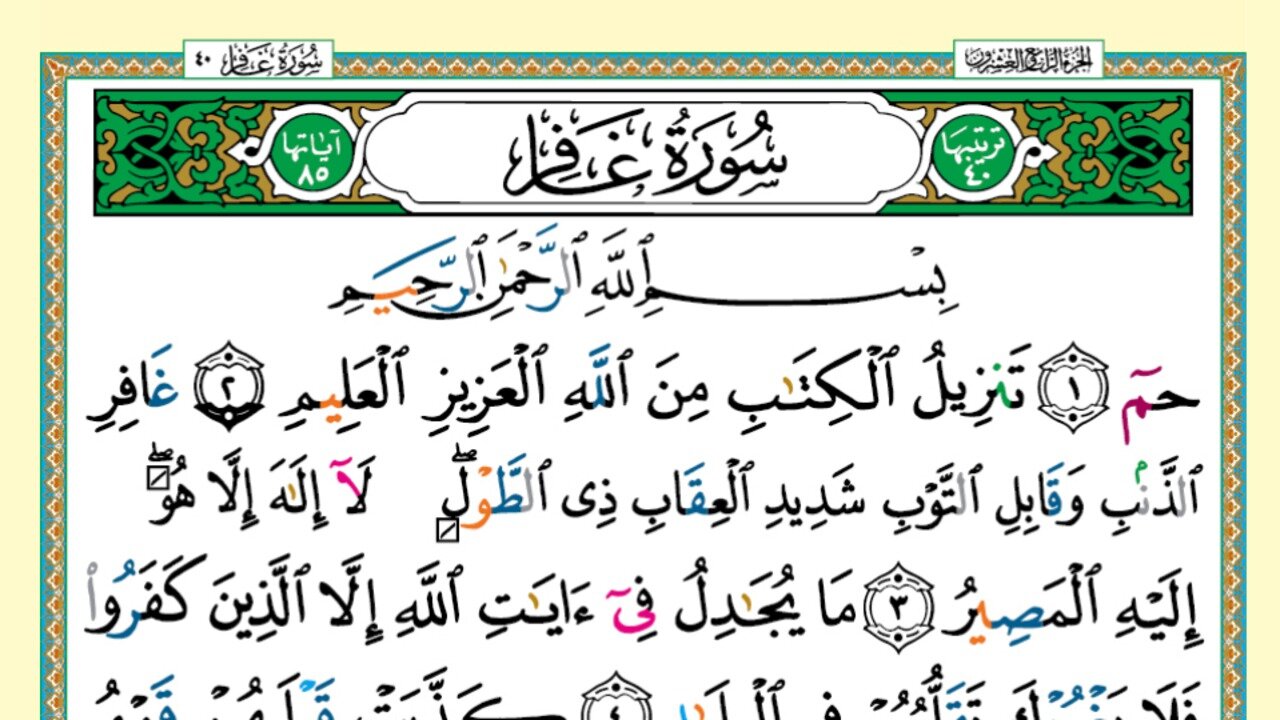 الجزء الرابع والعشرون
سُورَةُ غَافِر ٤٠
ترتيبها ٤٠
سُورَةُ غَافِر
آياتها ٨٥
بِسْمِ ٱللَّهِ ٱلرَّحْمَٰنِ ٱلرَّحِيمِ
حمٓ ١ تَنزِيلُ ٱلْكِتَٰبِ مِنَ ٱللَّهِ ٱلْعَزِيزِ ٱلْعَلِيمِ ٢ غَافِرِ
ٱلذَّنۢبِ وَقَابِلِ ٱلتَّوْبِ شَدِيدِ ٱلْعِقَابِ ذِى ٱلطَّوْلِۖ لَآ إِلَٰهَ إِلَّا هُوَۖ
إِلَيْهِ ٱلْمَصِيرُ ٣ مَا يُجَٰدِلُ فِىٓ ءَايَٰتِ ٱللَّهِ إِلَّا ٱلَّذِينَ كَفَرُوا۟
فَلَا يَغْرُرْكَ تَقَلُّبُهُمْ فِى ٱلْبِلَٰدِ ٤ كَذَّبَتْ قَبْلَهُمْ قَوْمُ